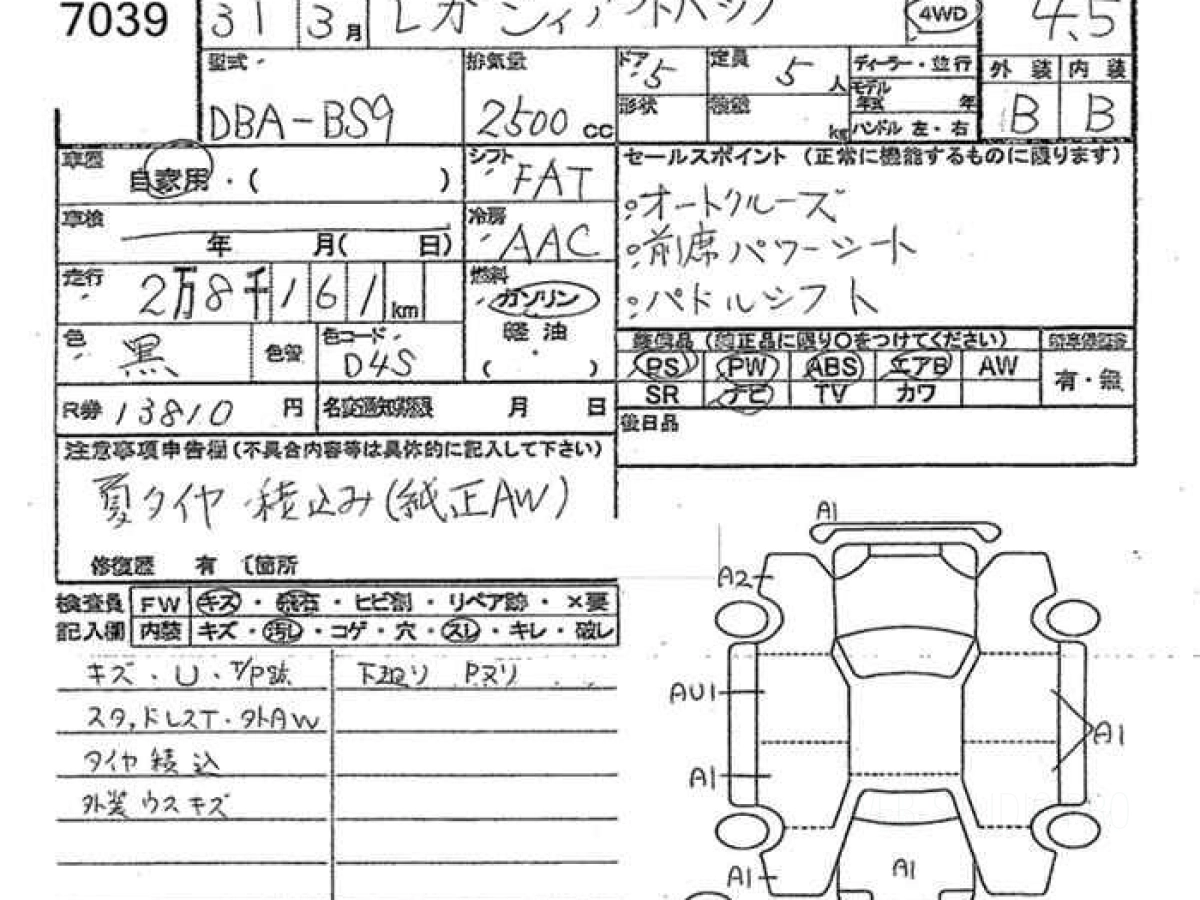 7039 31 3月 レガシィアウトバック 4WD 4.5
型式 排気量 ドア 5 定員 5人 ディーラー・並行 外装 内装
DBA-BS9 2500cc 形状 モデル年式 年 B B
kg ハンドル 左・右
車歴 自家用・( ) シフト FAT セールスポイント (正常に機能するものに限ります)
車検 年 月( 日) 冷房 AAC ・オートクルーズ
・前席パワーシート
走行 2万8千161km 燃料 ガソリン ・パドルシフト
軽油
( )
色 黒 色替 色コード D4S 装備品 (純正品に限り○をつけてください)
PS PW ABS エアB AW 有・無
SR ナビ TV カワ
R券 13810円 月 日 後日品
注意事項申告欄(不具合内容等は具体的に記入して下さい)
夏タイヤ積込み(純正AW)
修復歴 有 〔箇所
検査員 FW キズ・飛石・ヒビ割・リペア跡・×要
記入欄 内装 キズ・汚し・コゲ・穴・スレ・キレ・破レ
キズ・U・T/P跡 下廻り Pヌリ
スタッドレスT・外AW
タイヤ積込
外装ウスキズ
A1
A2
AU1
A1
A1
A1
A1